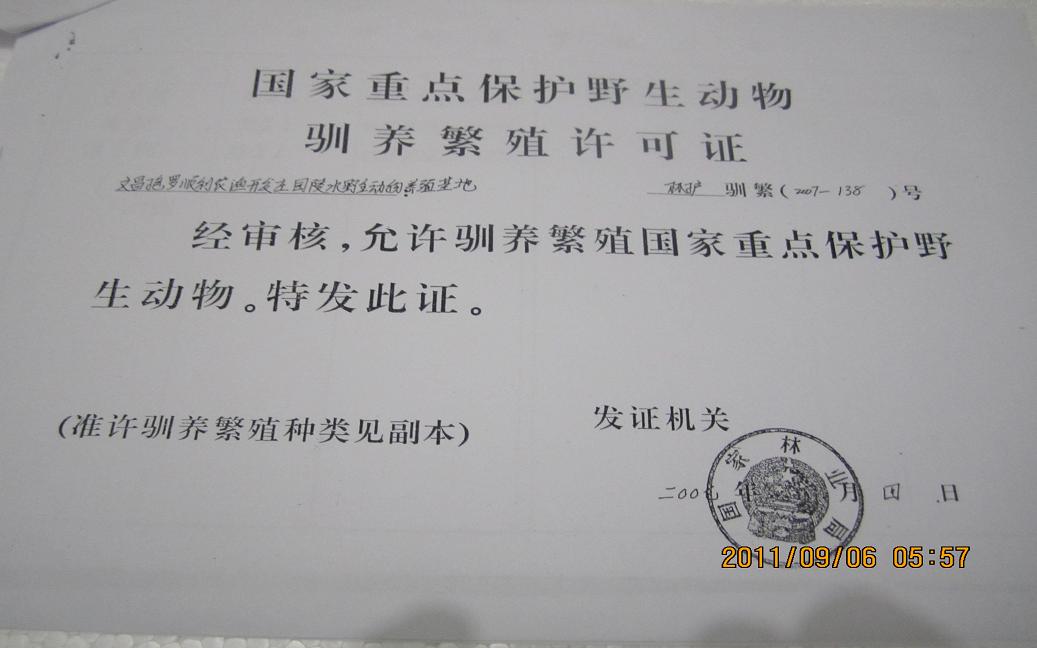 国家重点保护野生动物
驯养繁殖许可证
文昌抱罗顺利农渔开发主因陵水野生动物养殖基地
林护 驯繁(2007-138)号
经审核,允许驯养繁殖国家重点保护野
生动物。特发此证。
(准许驯养繁殖种类见副本)
发证机关
国家林业局
二00七年 月 四 日
2011/09/06 05:57